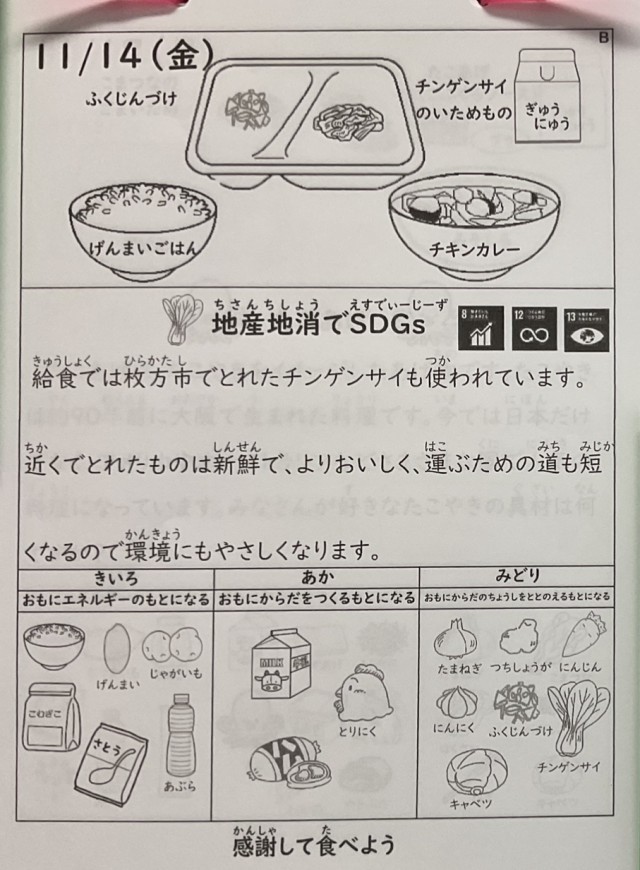 B
11/14(金)
ふくじんづけ
チンゲンサイ
のいためもの
ぎゅう
にゅう
げんまいごはん
チキンカレー
ちさんちしょう えすでぃーじーず
地産地消でSDGs
8
12
13
きゅうしょく ひらかたし つか
給食では枚方市でとれたチンゲンサイも使われています。
ちか しんせん はこ みち みじか
近くでとれたものは新鮮で、よりおいしく、運ぶための道も短
かんきょう
くなるので環境にもやさしくなります。
きいろ
おもにエネルギーのもとになる
げんまい
じゃがいも
こむぎこ
さとう
あぶら
あか
おもにからだをつくるもとになる
MILK
とりにく
みどり
おもにからだのちょうしをととのえるもとになる
たまねぎ
つちしょうが
にんじん
にんにく
ふくじんづけ
チンゲンサイ
キャベツ
かんしゃ た
感謝して食べよう